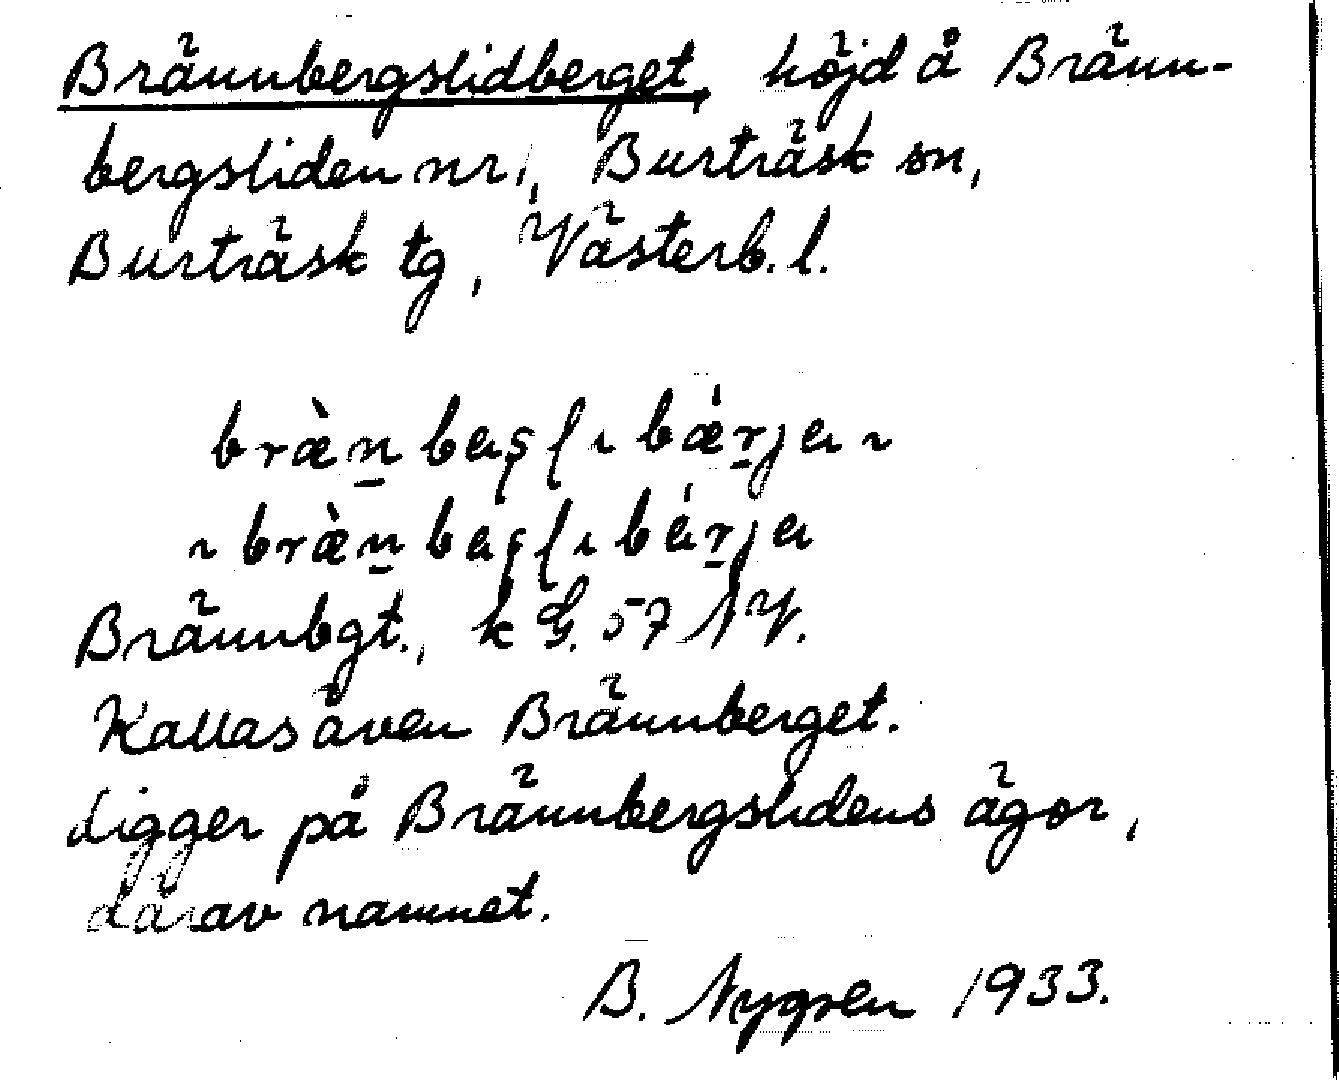 Brännbergslidberget, höjd å Bränn-
bergsliden nr 1, Burträsk sn,
Burträsk tg, Västerb. l.
bræ̀n̲baʂſıbǽr̲ja ~
~ bræ̀n̲baʂſıbár̲ja
Brännbgt., k G. 57 NV.
Kallas även Brännberget.
Ligger på Brännbergslidens ägor,
därav namnet.
B. Nygren 1933.